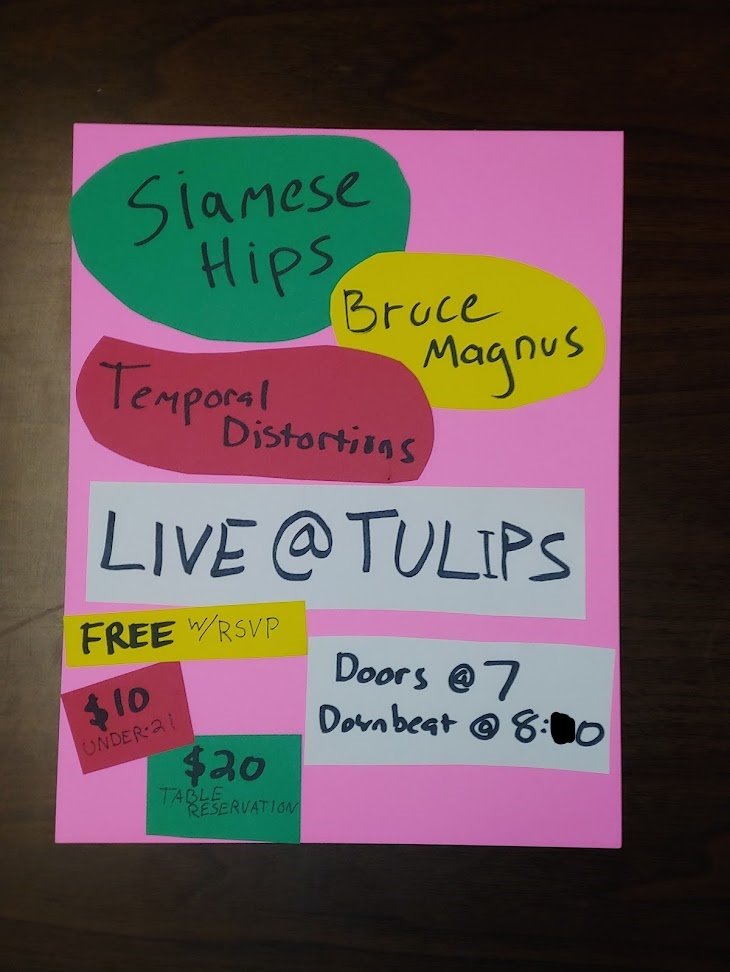 Siamese
Hips
Bruce
Magnus
Temporal
Distortions
LIVE @ TULIPS
FREE w/RSVP
$10
UNDER-21
$20
TABLE
RESERVATION
Doors @ 7
Downbeat @